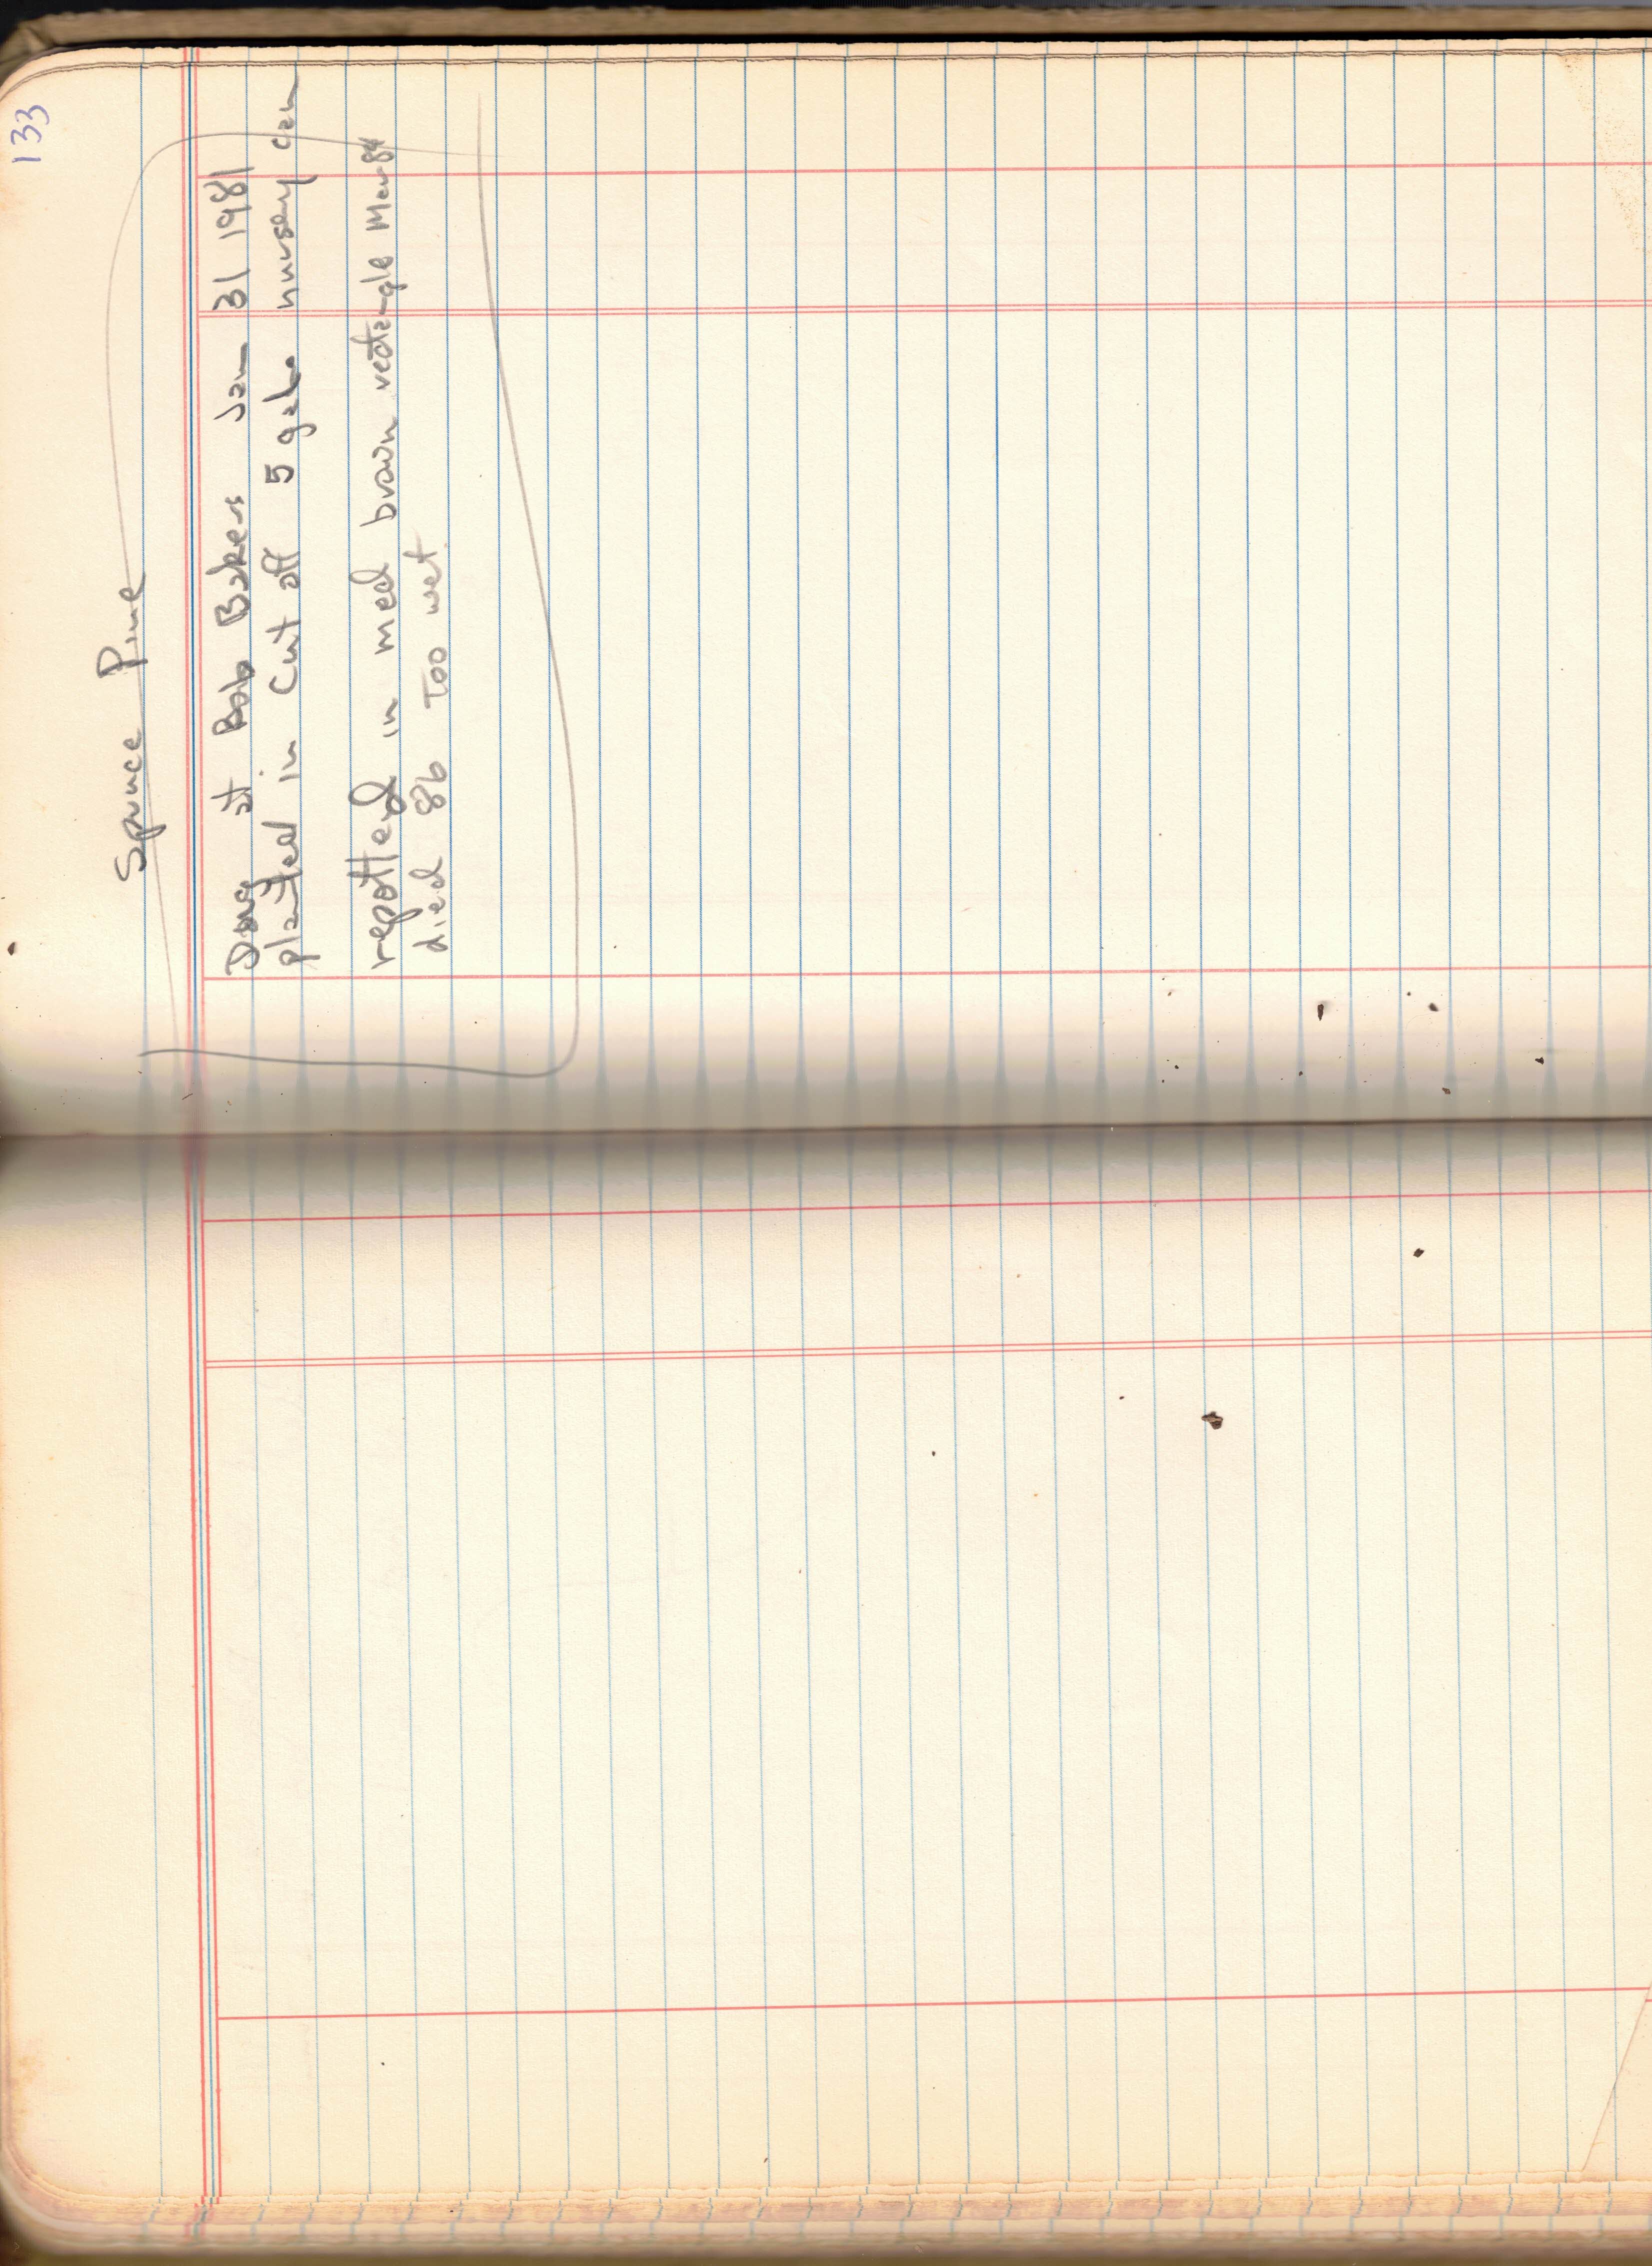 133
Spruce Pine
Dug at Bob Bakers Jan 31 1981
planted in Cut off 5 galo nursey can
repotted in med brown rectangle Mar 84
died 86 Too wet